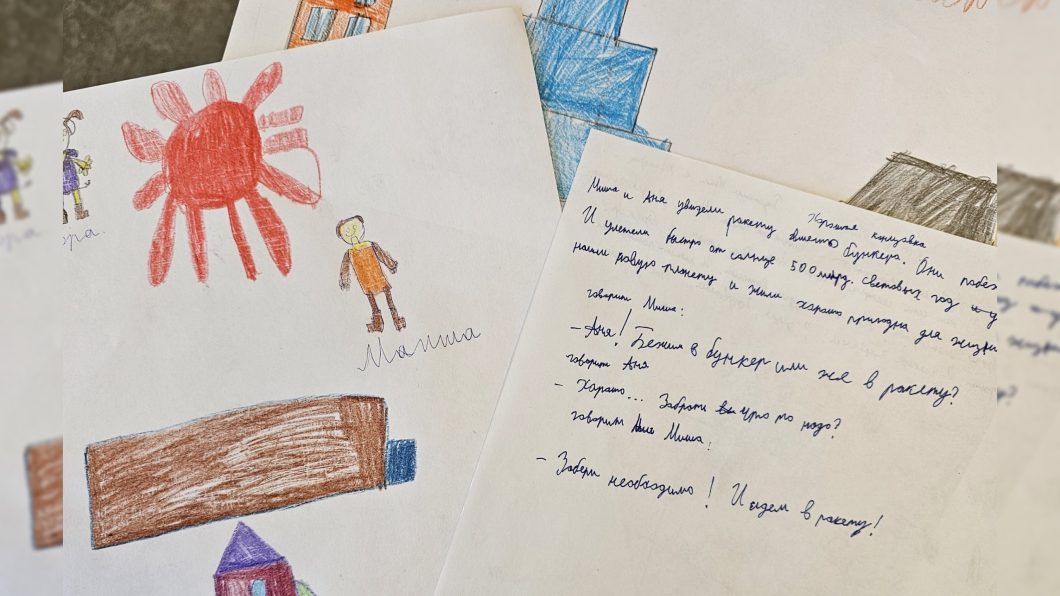 Маиша
Миша и Аня увидели ракету вместо бункера. Они побе
И улетели быстро от солнце 500 млрд. световых год
нашли новую планету и жили харашо пригодна для жизни
говорит Миша:
— Аня! Бежим в бункер или же в ракету?
говорит Аня
— Харашо... Забрать что то надо?
говорит Миша:
— Забери необходимо! И идем в ракету!